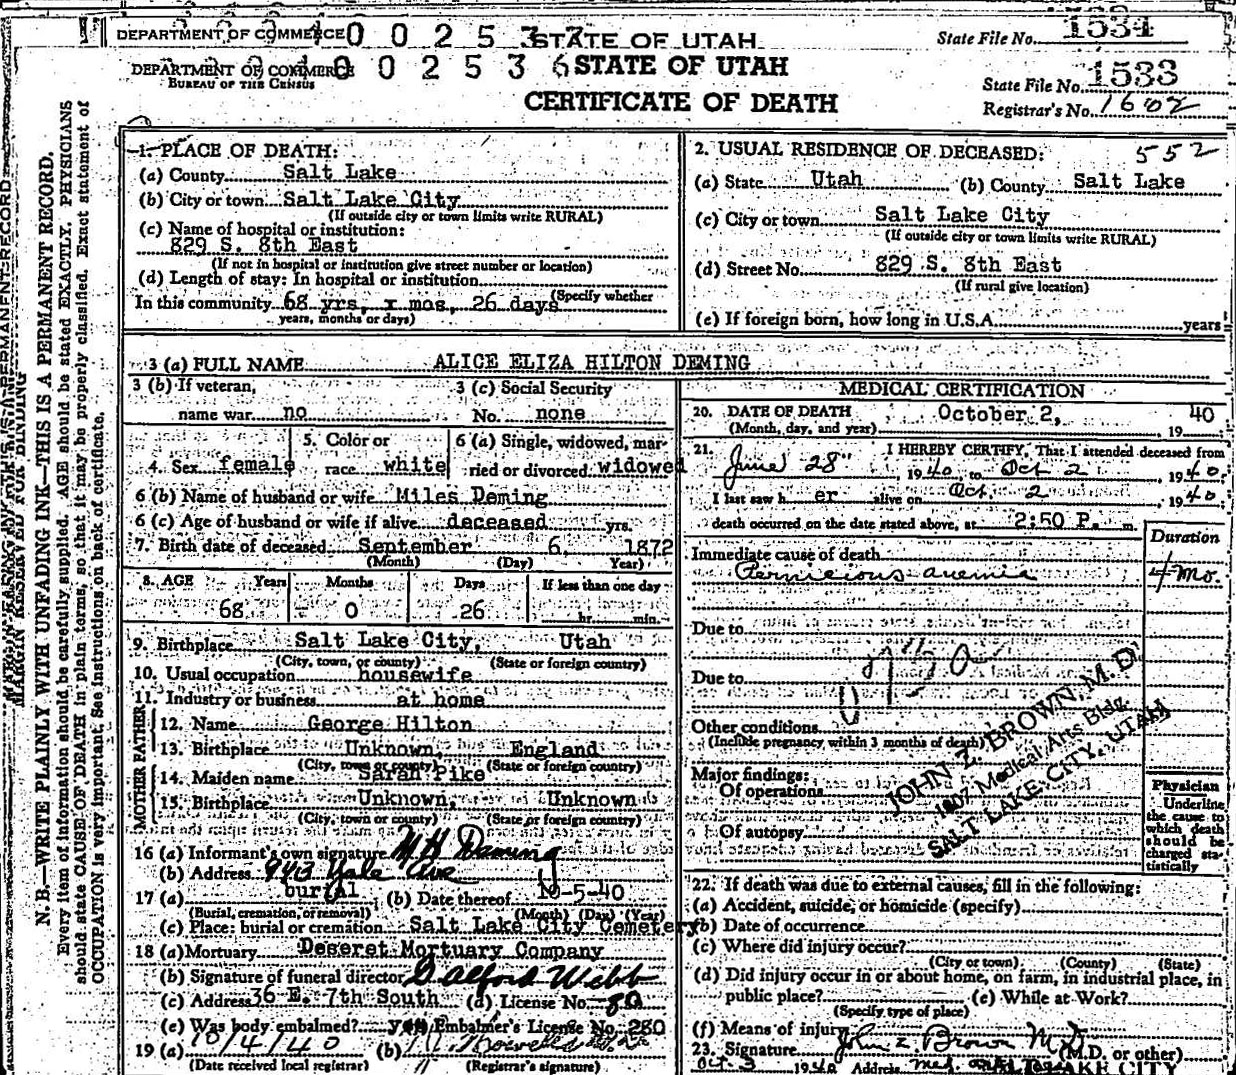 DEPARTMENT OF COMMERCE STATE OF UTAH State File No. 1534
DEPARTMENT OF COMMERCE STATE OF UTAH
BUREAU OF THE CENSUS State File No. 1533
CERTIFICATE OF DEATH Registrar's No. 1602
N. B.—WRITE PLAINLY WITH UNFADING INK—THIS IS A PERMANENT RECORD.
Every item of information should be carefully supplied. AGE should be stated EXACTLY. PHYSICIANS
should state CAUSE OF DEATH in plain terms, so that it may be properly classified. Exact statement of
OCCUPATION is very important. See instructions on back of certificate.
1. PLACE OF DEATH:
(a) County Salt Lake
(b) City or town Salt Lake City
(If outside city or town limits write RURAL)
(c) Name of hospital or institution:
829 S. 8th East
(If not in hospital or institution give street number or location)
(d) Length of stay: In hospital or institution
(Specify whether
In this community 68 yrs, x mos, 26 days
years, months or days)
2. USUAL RESIDENCE OF DECEASED: 552
(a) State Utah (b) County Salt Lake
(c) City or town Salt Lake City
(If outside city or town limits write RURAL)
(d) Street No. 829 S. 8th East
(If rural give location)
(e) If foreign born, how long in U.S.A. years
3 (a) FULL NAME ALICE ELIZA HILTON DEMING
3 (b) If veteran, 3 (c) Social Security
name war no No. none
4. Sex female 5. Color or race white 6 (a) Single, widowed, married or divorced. widowed
6 (b) Name of husband or wife Miles Deming
6 (c) Age of husband or wife if alive deceased yrs.
7. Birth date of deceased September 6, 1872
(Month) (Day) Year)
8. AGE Years Months Days If less than one day
68 0 26 hr. min.
9. Birthplace Salt Lake City, Utah
(City, town, or county) (State or foreign country)
10. Usual occupation housewife
11. Industry or business at home
FATHER
12. Name George Hilton
13. Birthplace Unknown, England
(City, town or county) (State or foreign country)
MOTHER
14. Maiden name Sarah Pike
15. Birthplace Unknown, Unknown
(City, town or county) (State or foreign country)
16 (a) Informant's own signature Deming
(b) Address Yale Ave
17 (a) burial (b) Date thereof 10-5-40
(Burial, cremation, or removal) (Month) (Day) (Year)
(c) Place: burial or cremation Salt Lake City Cemetery
18 (a) Mortuary Deseret Mortuary Company
(b) Signature of funeral director Webb
(c) Address 36 E. 7th South (d) License No. 80
(e) Was body embalmed? yes Embalmer's License No. 280
19 (a) 10/4/40 (b)
(Date received local registrar) (Registrar's signature)
MEDICAL CERTIFICATION
20. DATE OF DEATH October 2, 19 40
(Month, day, and year)
21. I HEREBY CERTIFY, That I attended deceased from
June 28 1940 to Oct 2, 1940
I last saw h er alive on Oct. 2, 1940
death occurred on the date stated above, at 2:50 P. m.
Duration
Immediate cause of death
Pernicious anemia 4 Mo.
Due to
Due to
Other conditions
(Include pregnancy within 3 months of death)
Major findings:
Of operations
Of autopsy
JOHN Z. BROWN, M. D.
1007 Medical Arts Bldg.
SALT LAKE CITY, UTAH
Physician
Underline
the cause to
which death
should be
charged sta-
tistically
22. If death was due to external causes, fill in the following:
(a) Accident, suicide, or homicide (specify)
(b) Date of occurrence
(c) Where did injury occur?
(City or town) (County) (State)
(d) Did injury occur in or about home, on farm, in industrial place, in
public place? (e) While at Work?
(Specify type of place)
(f) Means of injury
23. Signature John Z Brown M D (M.D. or other)
Oct. 3 1940 Address